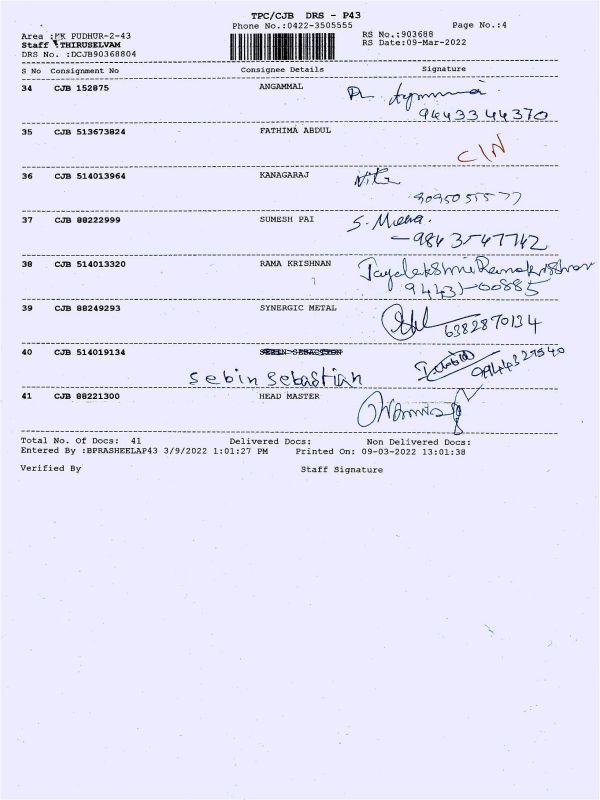 TPC/CJB DRS - P43
Phone No.:0422-3505555 Page No.:4
Area :KK PUDHUR-2-43 RS No.:903688
Staff :THIRUSELVAM RS Date:09-Mar-2022
DRS No. :DCJB90368804
S No Consignment No Consignee Details Signature
34 CJB 152875 ANGAMMAL
9443344370
35 CJB 513673824 FATHIMA ABDUL
C/N
36 CJB 514013964 KANAGARAJ
9095055577
37 CJB 88222999 SUMESH PAI S. Meena.
- 9843547742
38 CJB 514013320 RAMA KRISHNAN Jayalakshmi Ramakrishnan
94431-00885
39 CJB 88249293 SYNERGIC METAL
6382870134
40 CJB 514019134 SEBIN SEBASTION
sebin sebastian
41 CJB 88221300 HEAD MASTER
Total No. Of Docs: 41 Delivered Docs: Non Delivered Docs:
Entered By :BPRASHEELAP43 3/9/2022 1:01:27 PM Printed On: 09-03-2022 13:01:38
Verified By Staff Signature